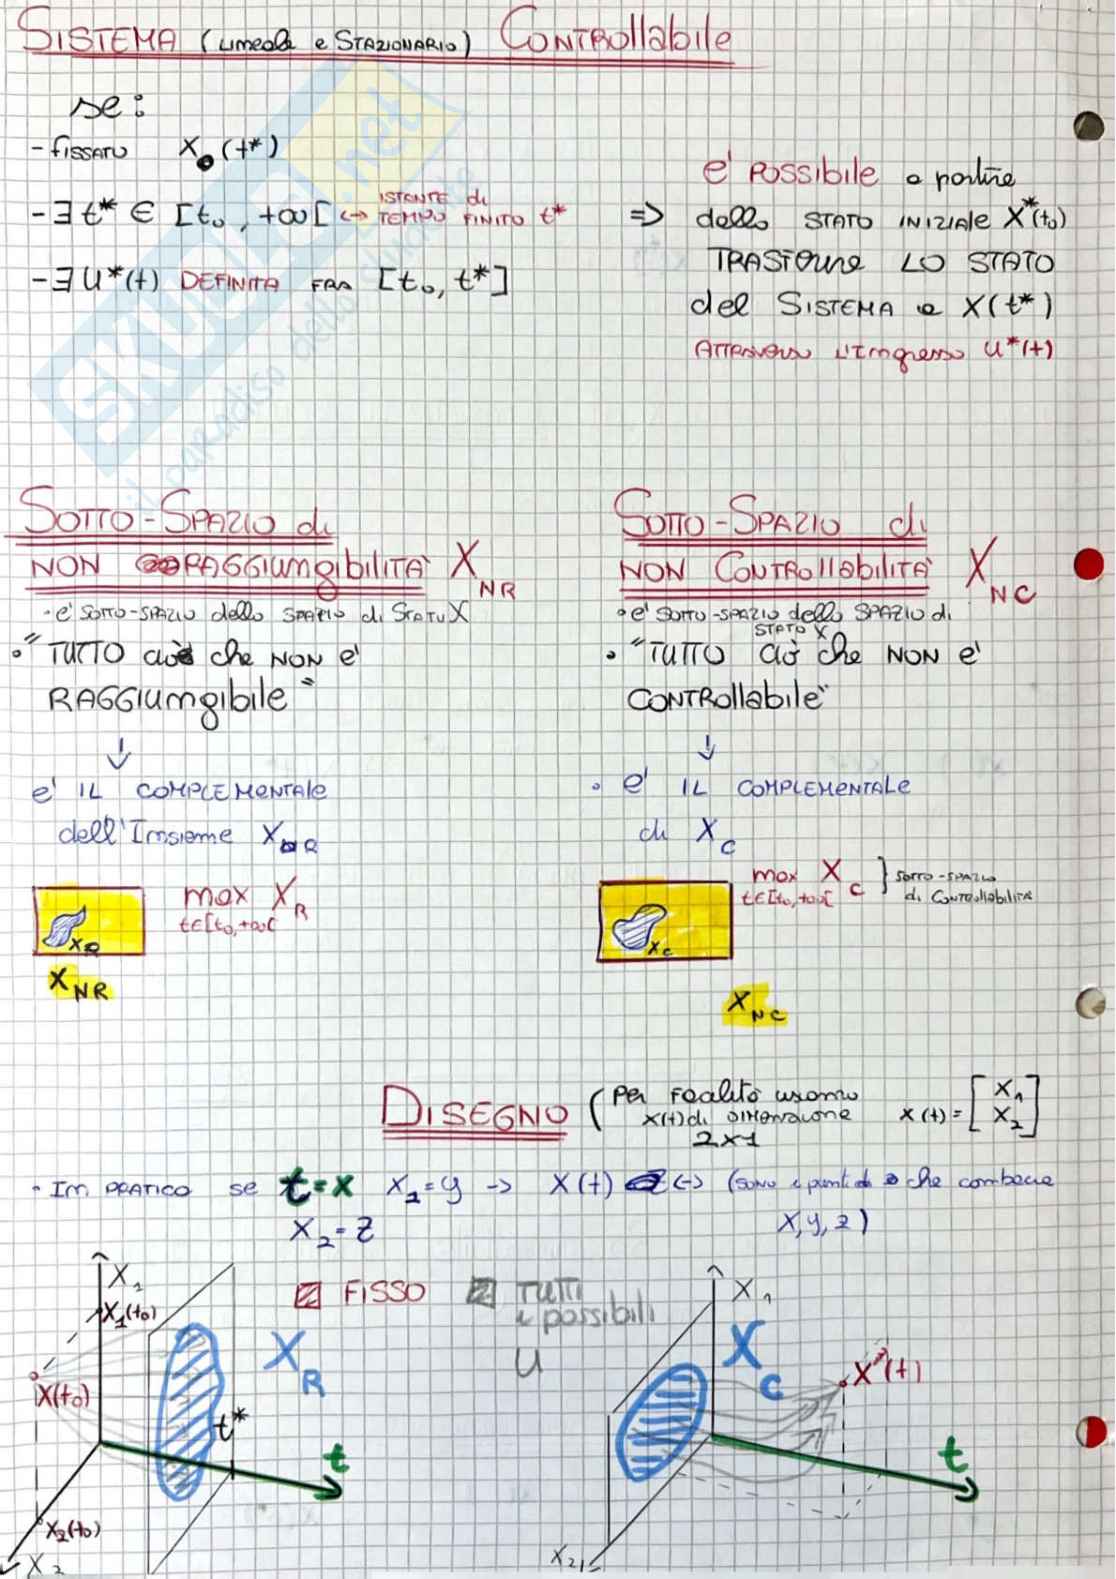 SISTEMA (LINEARE e STAZIONARIO) CONTROllabile
se:
- FISSATO X₀(t*)
- ∃ t* ∈ [t₀, +∞[ ↔ ISTANTE di TEMPO FINITO t*
- ∃ U*(t) DEFINITA FRA [t₀, t*]
⇒ e' POSSIBILE a partire
dallo STATO INIZIALE X*(t₀)
TRASFERIRE LO STATO
del SISTEMA a X(t*)
ATTRAVERSO L'Ingresso U*(t)
SOTTO-SPAZIO di
NON RAGGIUngibILITA' X NR
- e' SOTTO-SPAZIO dello SPAZIO di STATO X
• "TUTTO ciò che NON e'
RAGGIUngibile"
↓
e' IL COMPLEMENTALE
dell'Insieme X R
X R
max X R
t∈[t₀,+∞[
X NR
SOTTO-SPAZIO di
NON CONTROllabILITA' X NC
• e' SOTTO-SPAZIO dello SPAZIO di
STATO X
• "TUTTO ciò che NON e'
CONTROllabile"
↓
• e' IL COMPLEMENTALE
di X C
X C
max X C } SOTTO-SPAZIO
t∈[t₀,+∞[ di CONTROllabILITA'
X NC
DISEGNO (Per Facalità usiamo
X(t) di DIMENSIONE
2x1
X(t) = [X₁ X₂]
- In PRATICO se t=x X₁=y → X(t) ↔ (sono i punti che combacia
X₂=z X,y,z)
FISSO
TUTTI
i possibili
U
X₁
X₁(t₀)
X(t₀)
X₂(t₀)
X₂
X R
t*
t
X₁
X C
X*(t)
t
X₂
SKUOLA.net
il paradiso dello studente